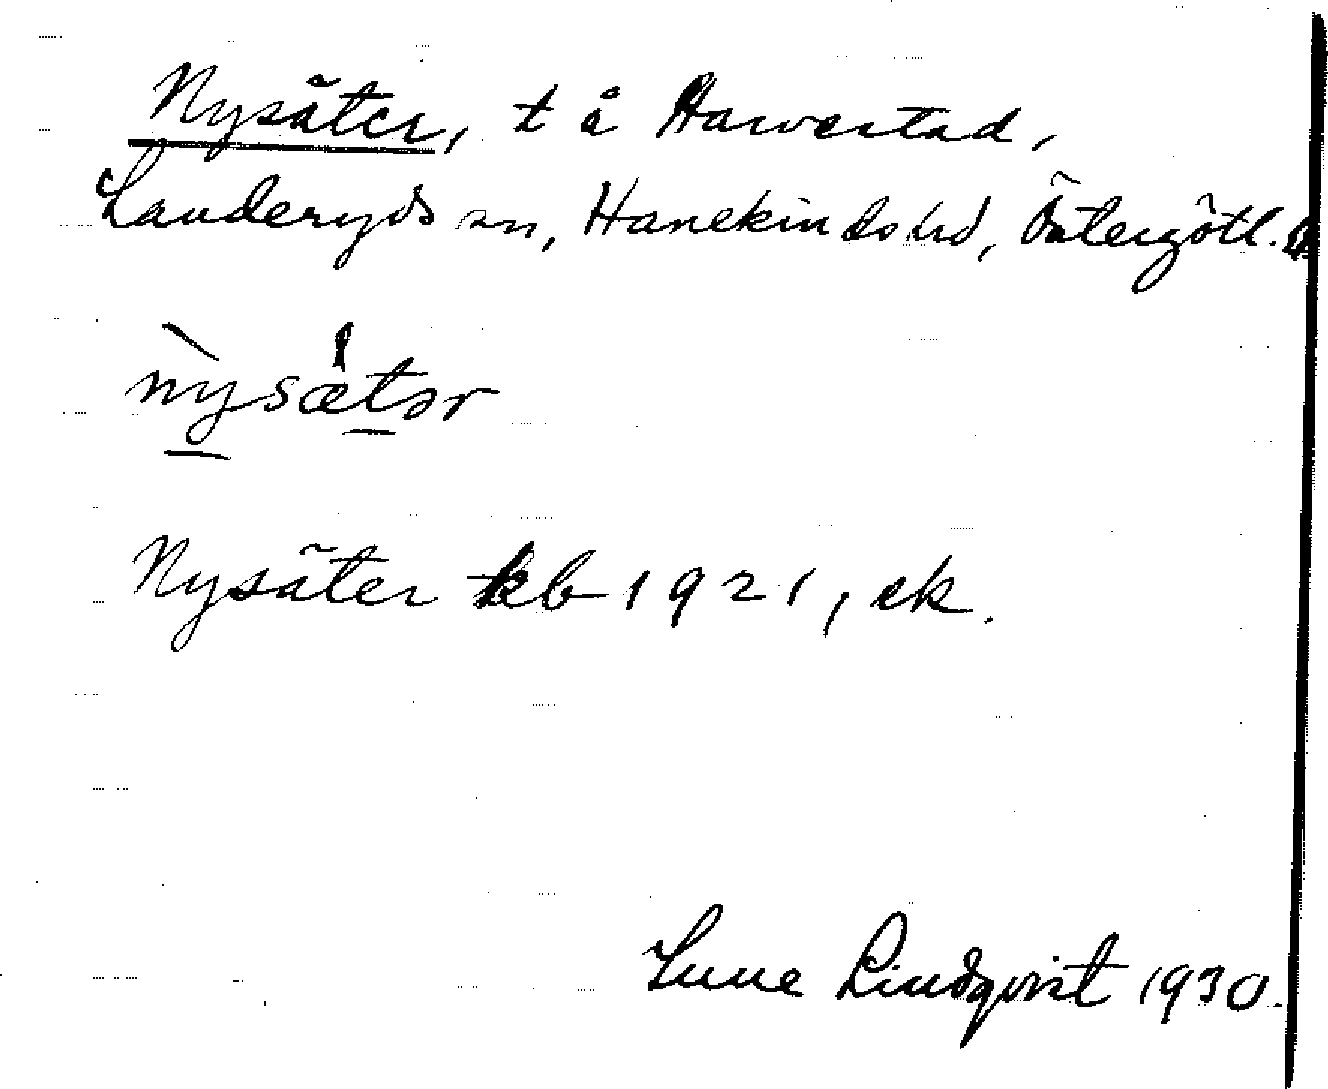 Nysäter, t å Harvestad,
Landeryds sn, Hanekinds hd, Östergötl.
nysætər
Nysäter kb 1921, ek.
Sune Lindqvist 1930.